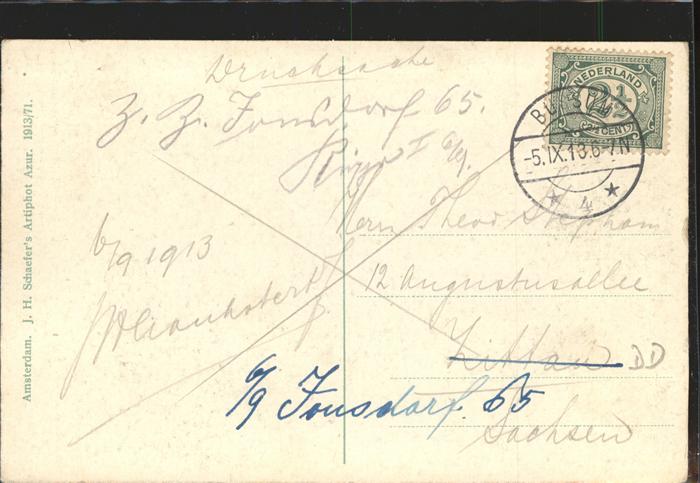 Drucksache
Z. Z. Jonsdorf 65.
6/9 1913
Herrn Theod Stephan
12 Augustusallee
Zittau DD
6/9 Jonsdorf 65
Sachsen
NEDERLAND
2½
CENT
-5.IX.13.6-7.N
4
Amsterdam. J. H. Schaefer's Artiphot Azur. 1913/71.